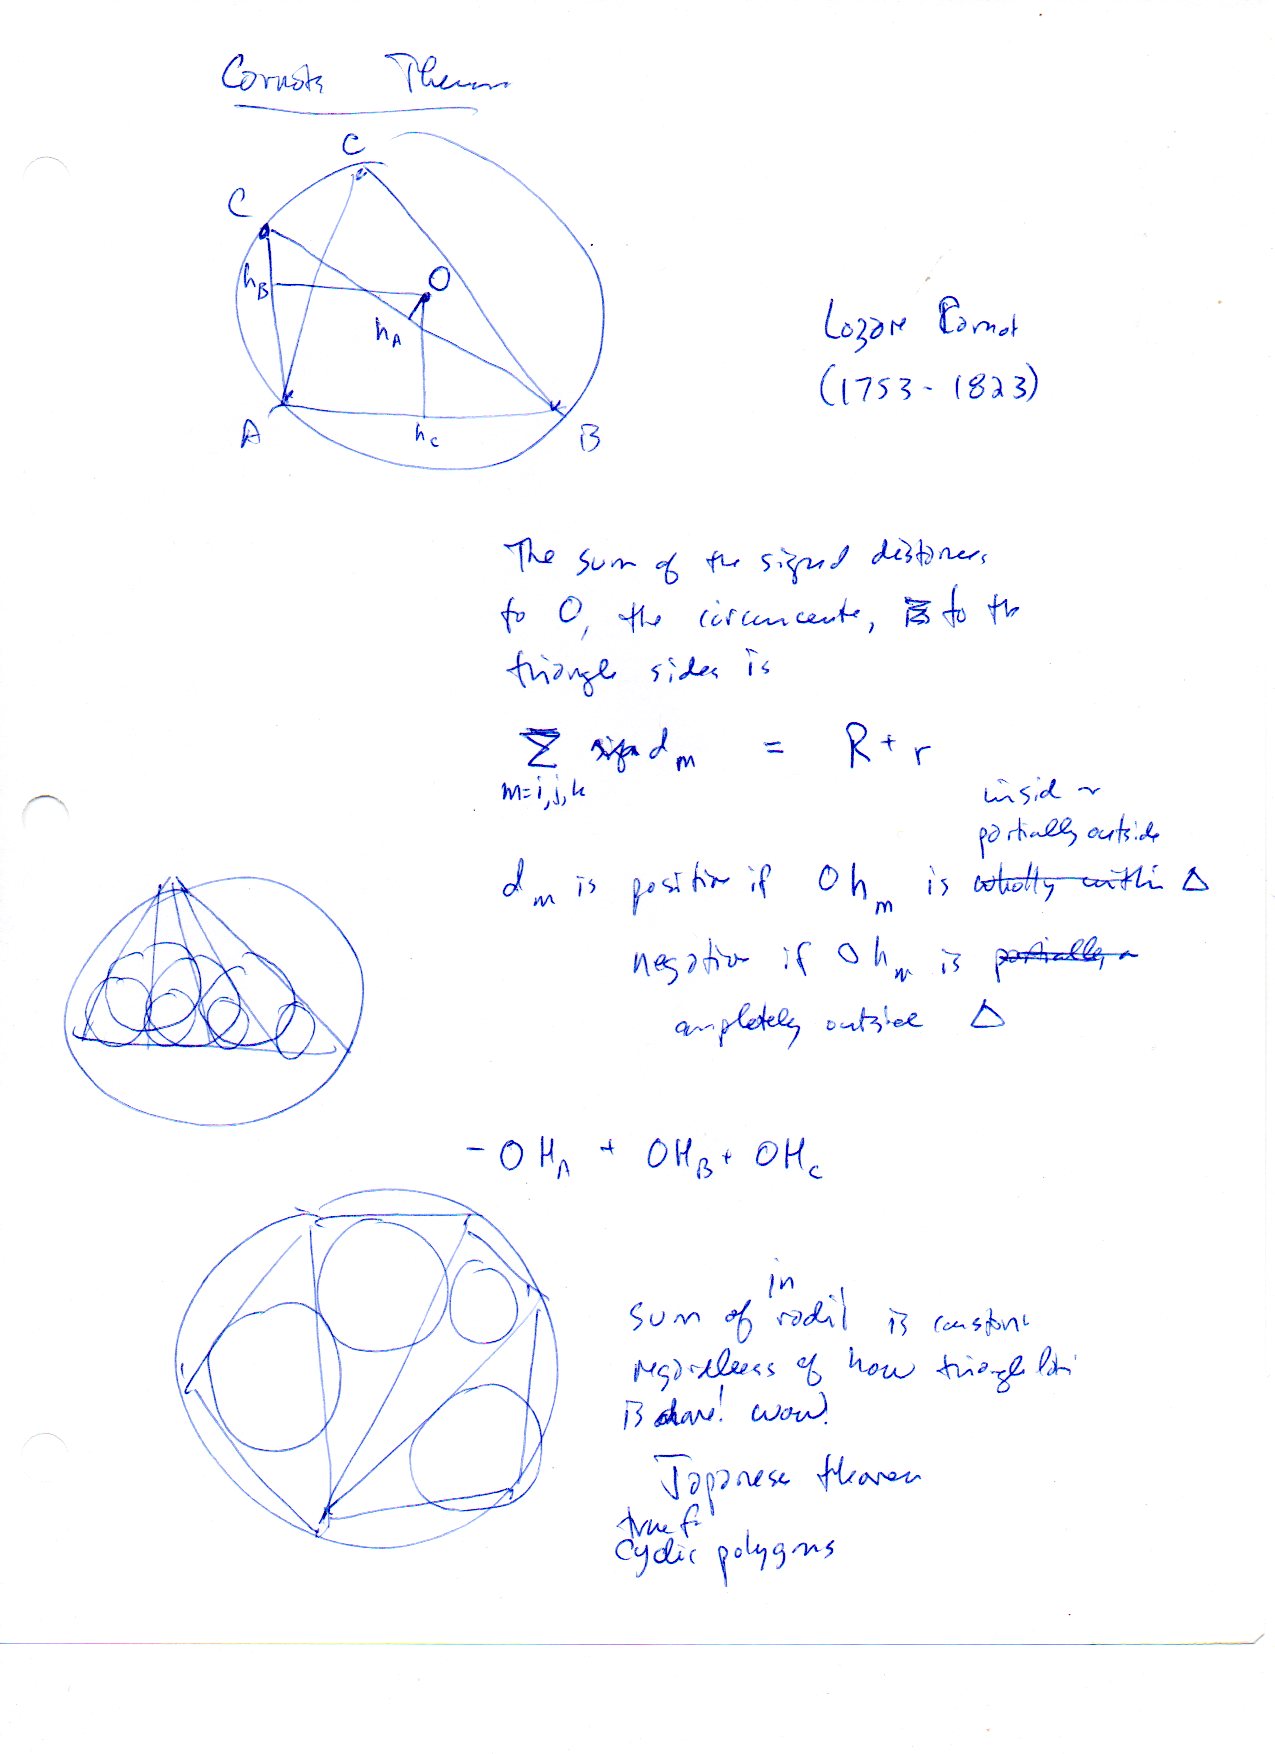 Carnots Theorem
C
C
h_B
O
h_A
A
h_c
B
Lazare Carnot
(1753 - 1823)
The sum of the signed distances
to O, the circumcente, to the
triangle sides is
Σ d_m = R + r
m=i,j,k
inside or
partially outside
d_m is positive if O h_m is wholly within Δ
negative if O h_m is partially or
completely outside Δ
- OH_A + OH_B + OH_C
in
sum of radii is constant
regardless of how triangulation
is done! wow!
Japanese theorem
true for
cyclic polygons